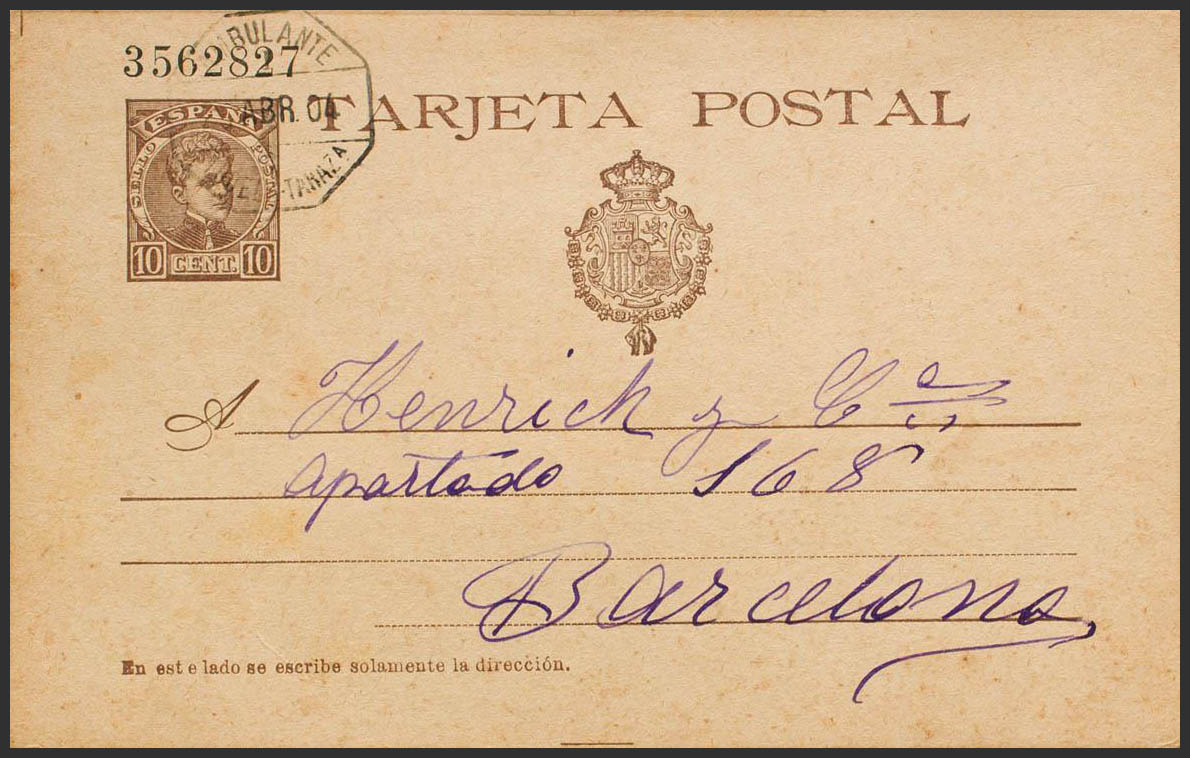 3562827
AMBULANTE
ABR. 04
TARAZA
TARJETA POSTAL
ESPAÑA
SELLO POSTAL
10 CENT. 10
A Henrich y Cª
apartado 168
Barcelona
En este lado se escribe solamente la dirección.